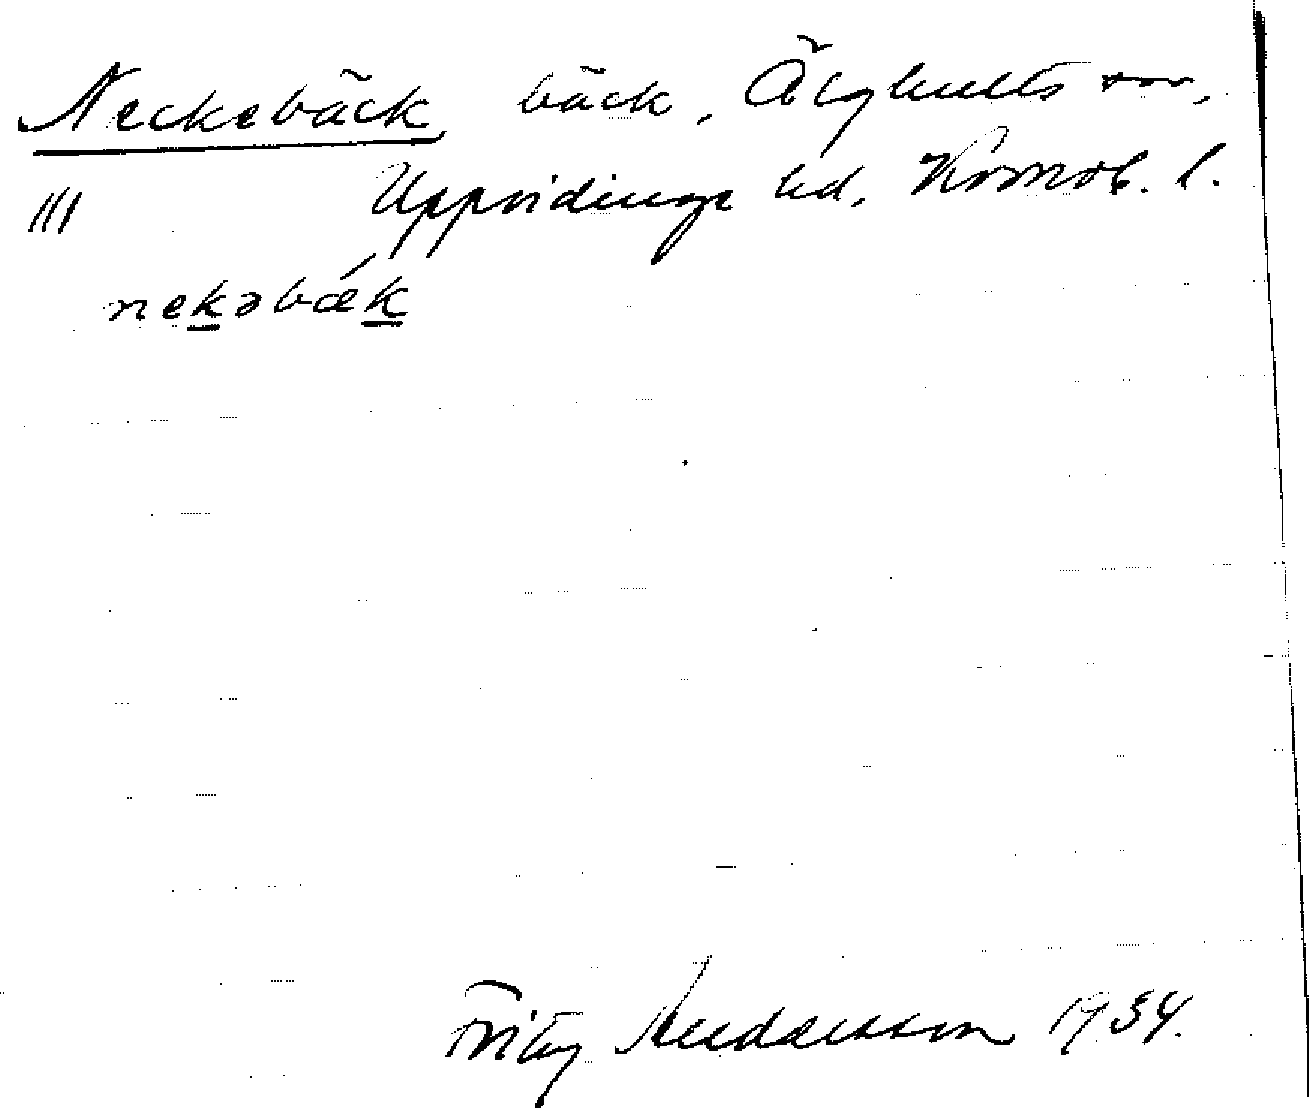 Neckebäck, bäck, Älghults sn,
||| Uppvidinge hd, Kronob. l.
nekəbæ´k
Fritz Andersson 1934.